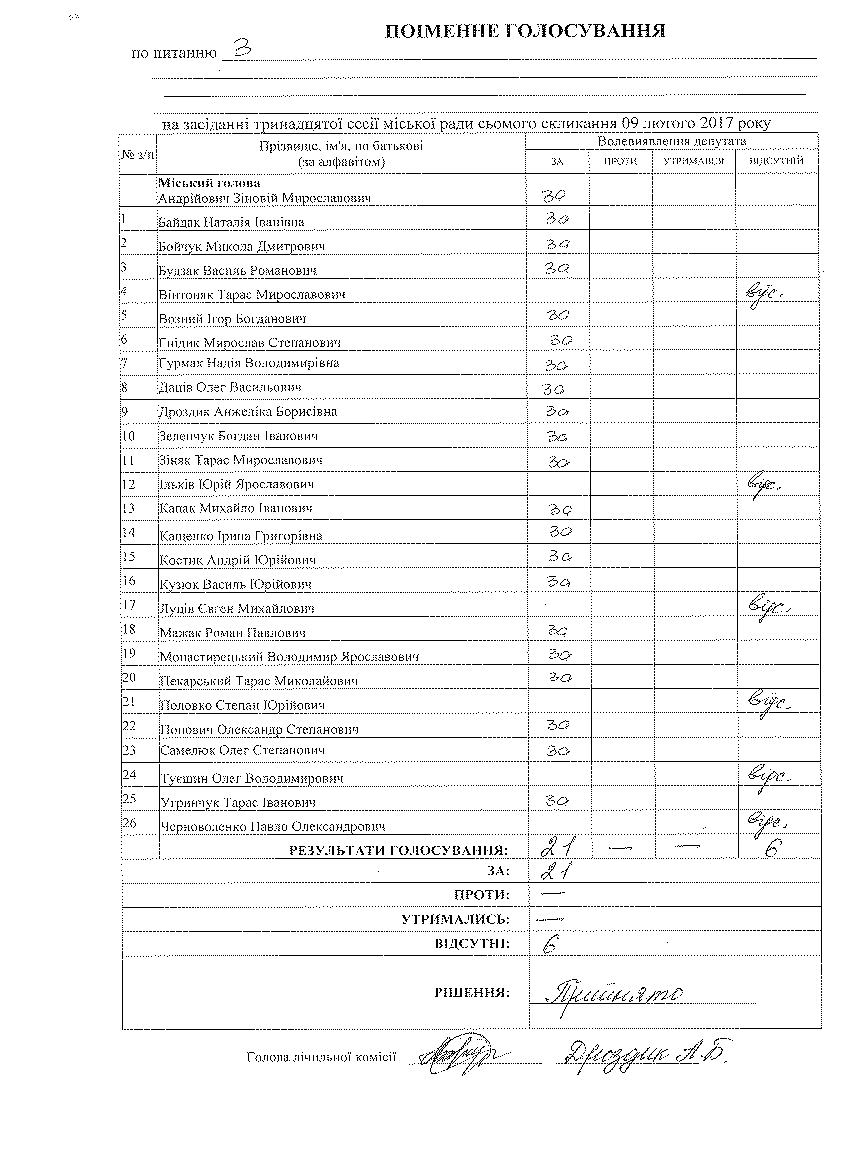 ПОІМЕННЕ ГОЛОСУВАННЯ
по питанню 3
на засіданні тринадцятої сесії міської ради сьомого скликання 09 лютого 2017 року
№ з/п Прізвище, ім'я, по батькові (за алфавітом) Волевиявлення депутата
ЗА ПРОТИ УТРИМАВСЯ ВІДСУТНІЙ
Міський голова
Андрійович Зіновій Мирославович За
1 Байдак Наталія Іванівна За
2 Бойчук Микола Дмитрович За
3 Будзак Василь Романович За
4 Вінтоняк Тарас Мирославович відс.
5 Возний Ігор Богданович За
6 Гнідик Мирослав Степанович За
7 Гурмак Надія Володимирівна За
8 Даців Олег Васильович За
9 Дроздик Анжеліка Борисівна За
10 Зеленчук Богдан Іванович За
11 Зіняк Тарас Мирославович За
12 Ільків Юрій Ярославович відс.
13 Капак Михайло Іванович За
14 Кащенко Ірина Григорівна За
15 Костик Андрій Юрійович За
16 Кузюк Василь Юрійович За
17 Луців Євген Михайлович відс.
18 Мажак Роман Павлович За
19 Монастирецький Володимир Ярославович За
20 Пекарський Тарас Миколайович За
21 Половко Степан Юрійович відс.
22 Попович Олександр Степанович За
23 Самелюк Олег Степанович За
24 Туєшин Олег Володимирович відс.
25 Угринчук Тарас Іванович За
26 Черноволенко Павло Олександрович відс.
РЕЗУЛЬТАТИ ГОЛОСУВАННЯ: 21 — — 6
ЗА: 21
ПРОТИ: —
УТРИМАЛИСЬ: —
ВІДСУТНІ: 6
РІШЕННЯ: Прийнято
Голова лічильної комісії Дроздик А.Б.